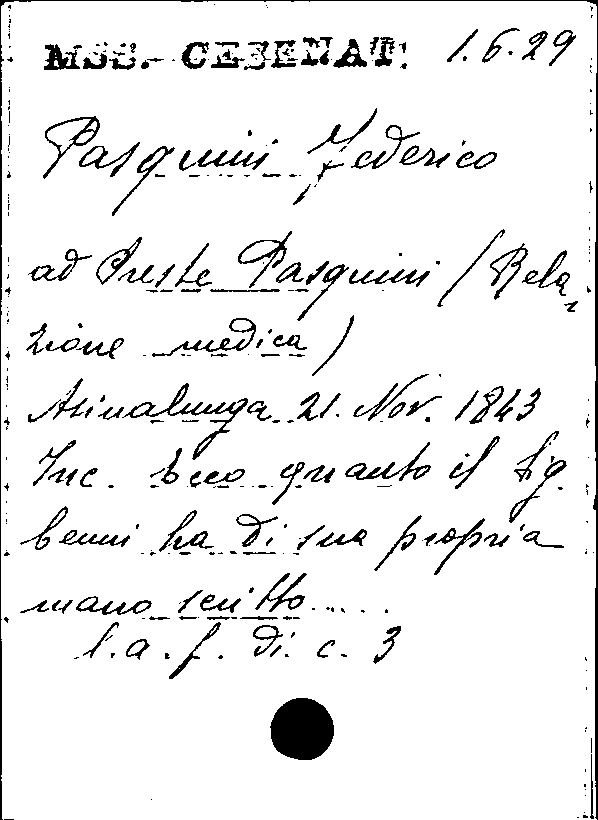 MSS. CESENAT. 1.6.29
Pasquini Federico
ad Oreste Pasquini (Rela-
zione medica)
Asinalunga 21. Nov. 1843
Inc. Ecco quanto il Sig.
benni ha di sua propria
mano scritto.....
l.a.f. di c. 3